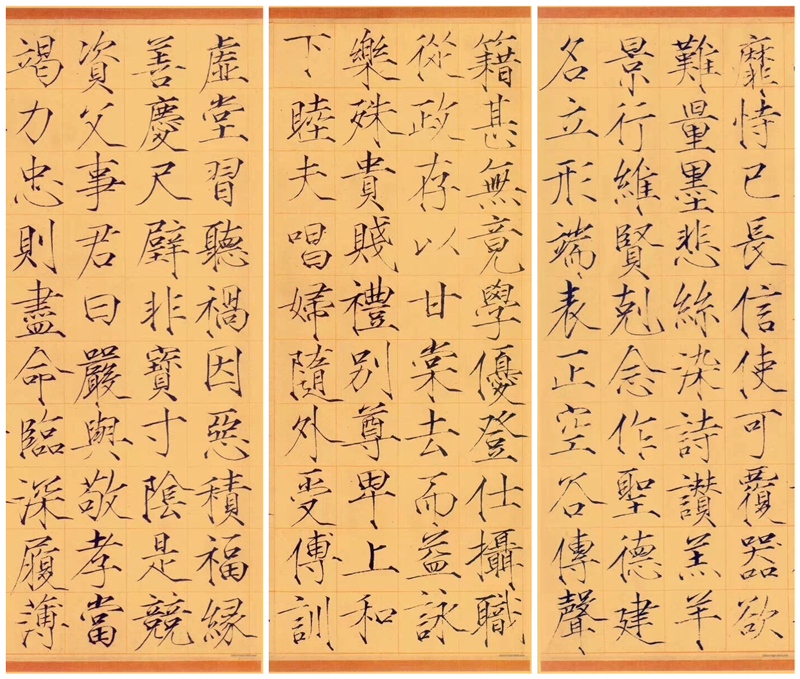 靡恃已長信使可覆器欲
難量墨悲絲染詩讃羔羊
景行維賢剋念作聖德建
名立形端表正空谷傳聲
籍甚無竟學優登仕攝職
從政存以甘棠去而益詠
樂殊貴賤禮別尊卑上和
下睦夫唱婦隨外受傅訓
虛堂習聽禍因惡積福縁
善慶尺璧非寶寸陰是競
資父事君曰嚴與敬孝當
竭力忠則盡命臨深履薄